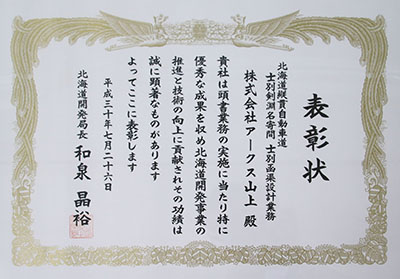 表彰状
北海道縦貫自動車道
士別剣淵名寄間 士別函渠設計業務
株式会社アークス山上 殿
貴社は頭書業務の実施に当たり特に
優秀な成果を収め北海道開発事業の
推進と技術の向上に貢献されその功績は
誠に顕著なものがあります
よってここに表彰します
平成三十年七月二十六日
北海道開発局長 和泉晶裕